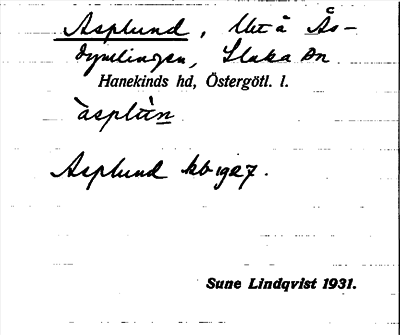 Asplund, Utå Ås-
dymlingen, Slaka sn
Hanekinds hd, Östergötl. l.
àsplùn
Asplund kb 1927.
Sune Lindqvist 1931.